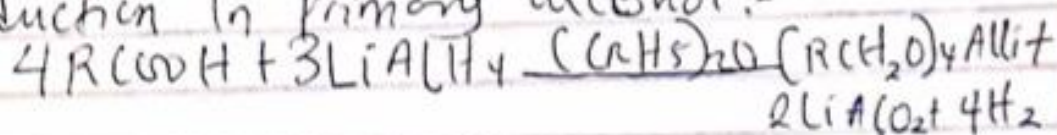 duction in primary alcohol.
4RCOOH + 3LiAlH4 (C2H5)2O (RCH2O)4AlLi +
2LiAlO2 + 4H2